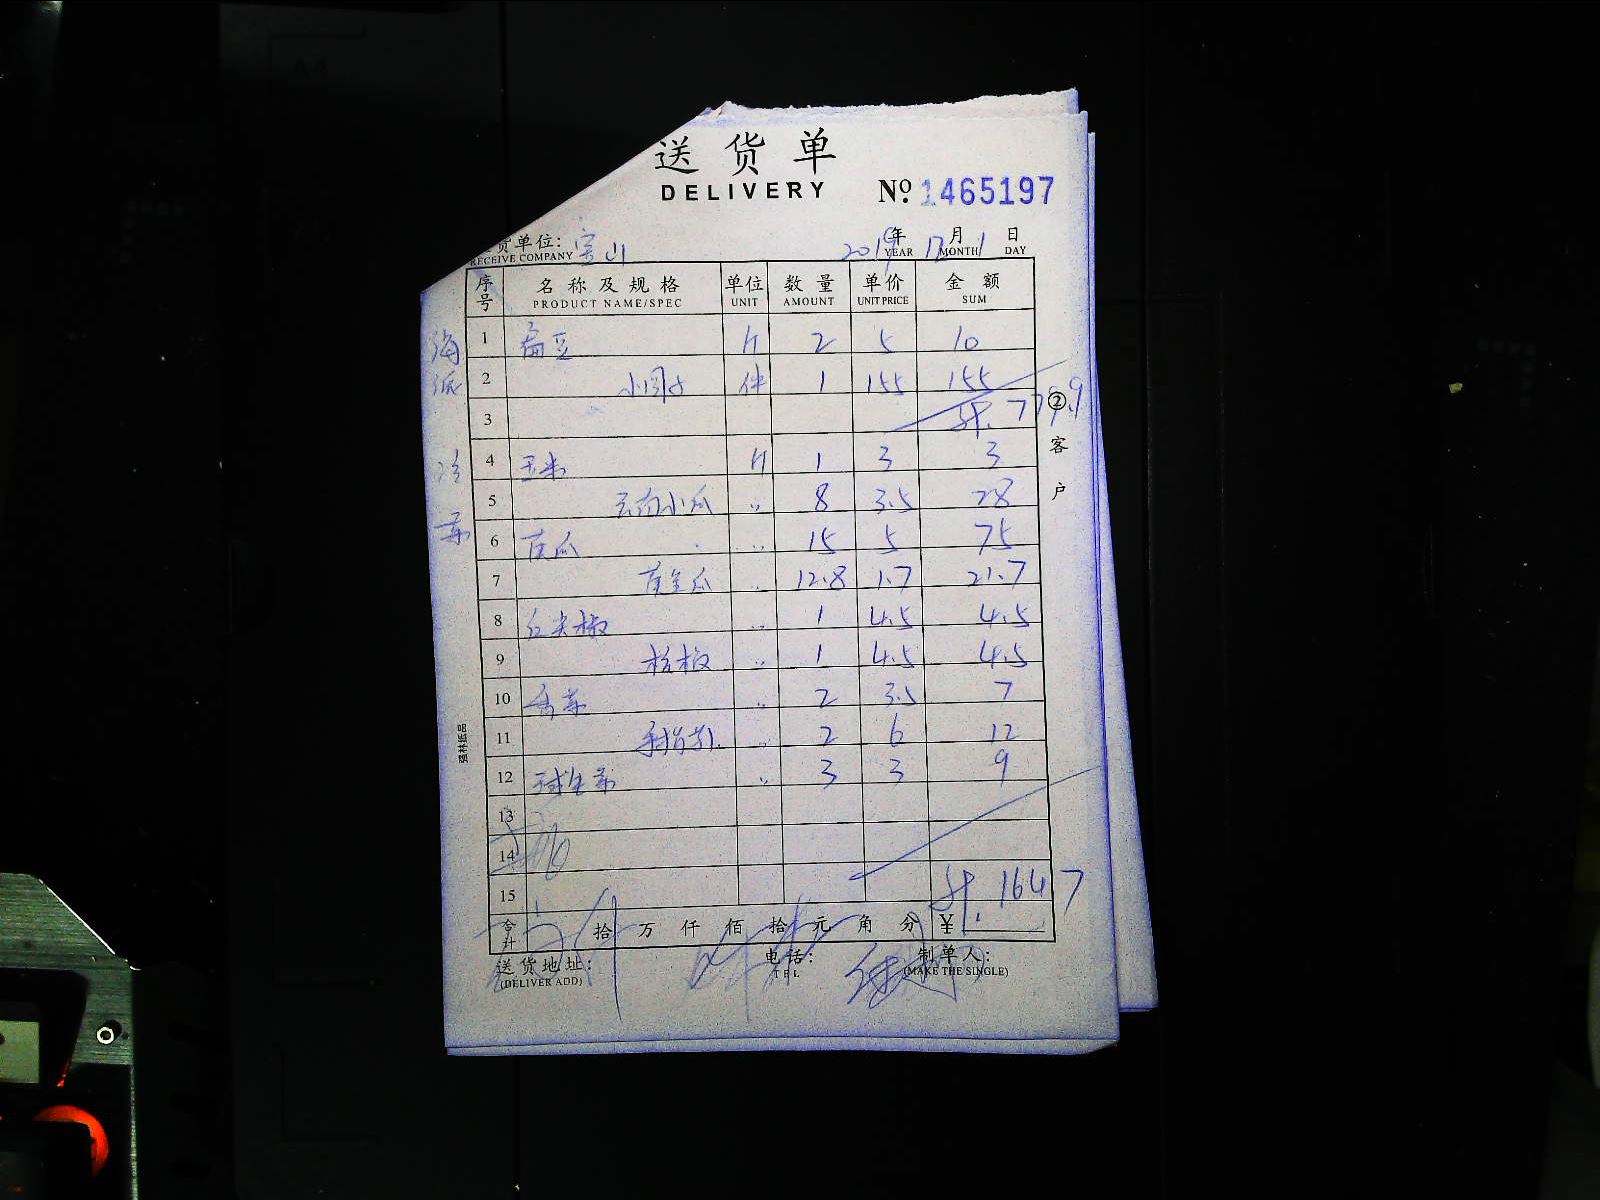 送货单
DELIVERY
№ 1465197
货单位: 宝山 2019年 12月 1日
RECEIVE COMPANY YEAR MONTH DAY
序号 名称及规格 单位 数量 单价 金额
PRODUCT NAME/SPEC UNIT AMOUNT UNIT PRICE SUM
海派
1 扁豆 斤 2 5 10
2 小圆 件 1 155 155
3 计. 779.9
②客户
冷菜
4 玉米 斤 1 3 3
5 云南小瓜 〃 8 3.5 28
6 黄瓜 〃 15 5 75
7 黄金瓜 〃 12.8 1.7 21.7
8 红尖椒 〃 1 4.5 4.5
9 杭椒 〃 1 4.5 4.5
10 香菜 〃 2 3.5 7
11 〃 2 6 12
12 球生菜 〃 3 3 9
13
14
15 计. 164.7
合计 拾 万 仟 佰 拾 元 角 分 ¥
送货地址: 电话: 制单人:
(DELIVER ADD) TEL (MAKE THE SINGLE)
强林纸品